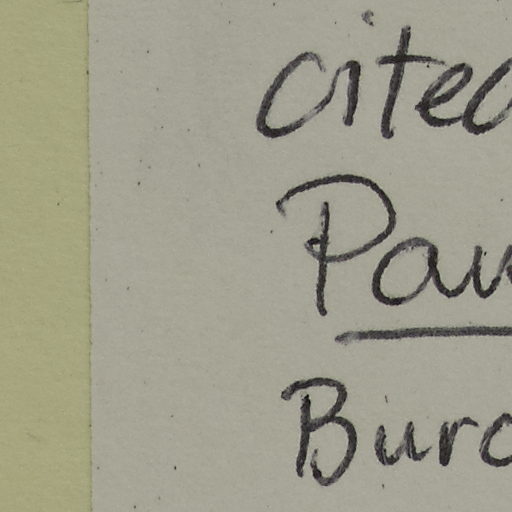 cited
Pau
Burc